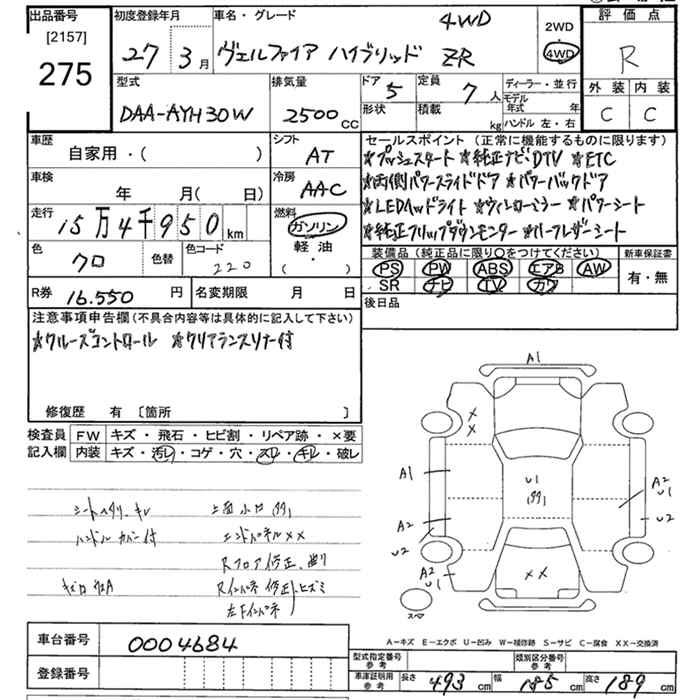 出品番号
[2157]
275
初度登録年月
27年 3月
車名・グレード
4WD
ヴェルファイア ハイブリッド ZR
2WD
4WD
評価点
R
外装 内装
C C
型式
DAA-AYH30W
排気量
2500cc
ドア 5
定員 7人
形状
積載 kg
ディーラー・並行
モデル年式 年
ハンドル 左・右
車歴
自家用・( )
シフト
AT
車検
年 月( 日)
冷房
AAC
走行
15万4千950km
燃料
ガソリン
軽油
( ・ )
色
クロ
色替
色コード
220
R券 16,550円
名変期限 月 日
セールスポイント(正常に機能するものに限ります)
★プッシュスタート ★純正ナビ・DTV ★ETC
★両側パワースライドドア ★パワーバックドア
★LEDヘッドライト ★ウィンカーミラー ★パワーシート
★純正フリップダウンモニター ★ハーフレザーシート
装備品(純正品に限り○をつけてください)
PS PW ABS エアB AW
SR ナビ TV カワ
新車保証書
有・無
後日品
注意事項申告欄(不具合内容等は具体的に記入して下さい)
★クルーズコントロール ★クリアランスソナー付
修復歴 有 [箇所 ]
検査員記入欄
FW キズ・飛石・ヒビ割・リペア跡・×要
内装 キズ・汚レ・コゲ・穴・スレ・キレ・破レ
シートヘタリ、キレ
ハンドルカバー付
上面小凹
エンドパネルXX
Rフロア修正、曲り
Rインパネ修正、ヒズミ
左Fインパネ
A1
×
×
A1
A2
U2
U1
A2
U1
U2
A2
U2
××
スペ
A−キズ E−エクボ U−凹み W−補修跡 S−サビ C−腐食 XX−交換済
車台番号 0004684
登録番号
型式指定番号 参考
類別区分番号 参考
車庫証明用 参考 長さ 493cm 幅 185cm 高さ 189cm